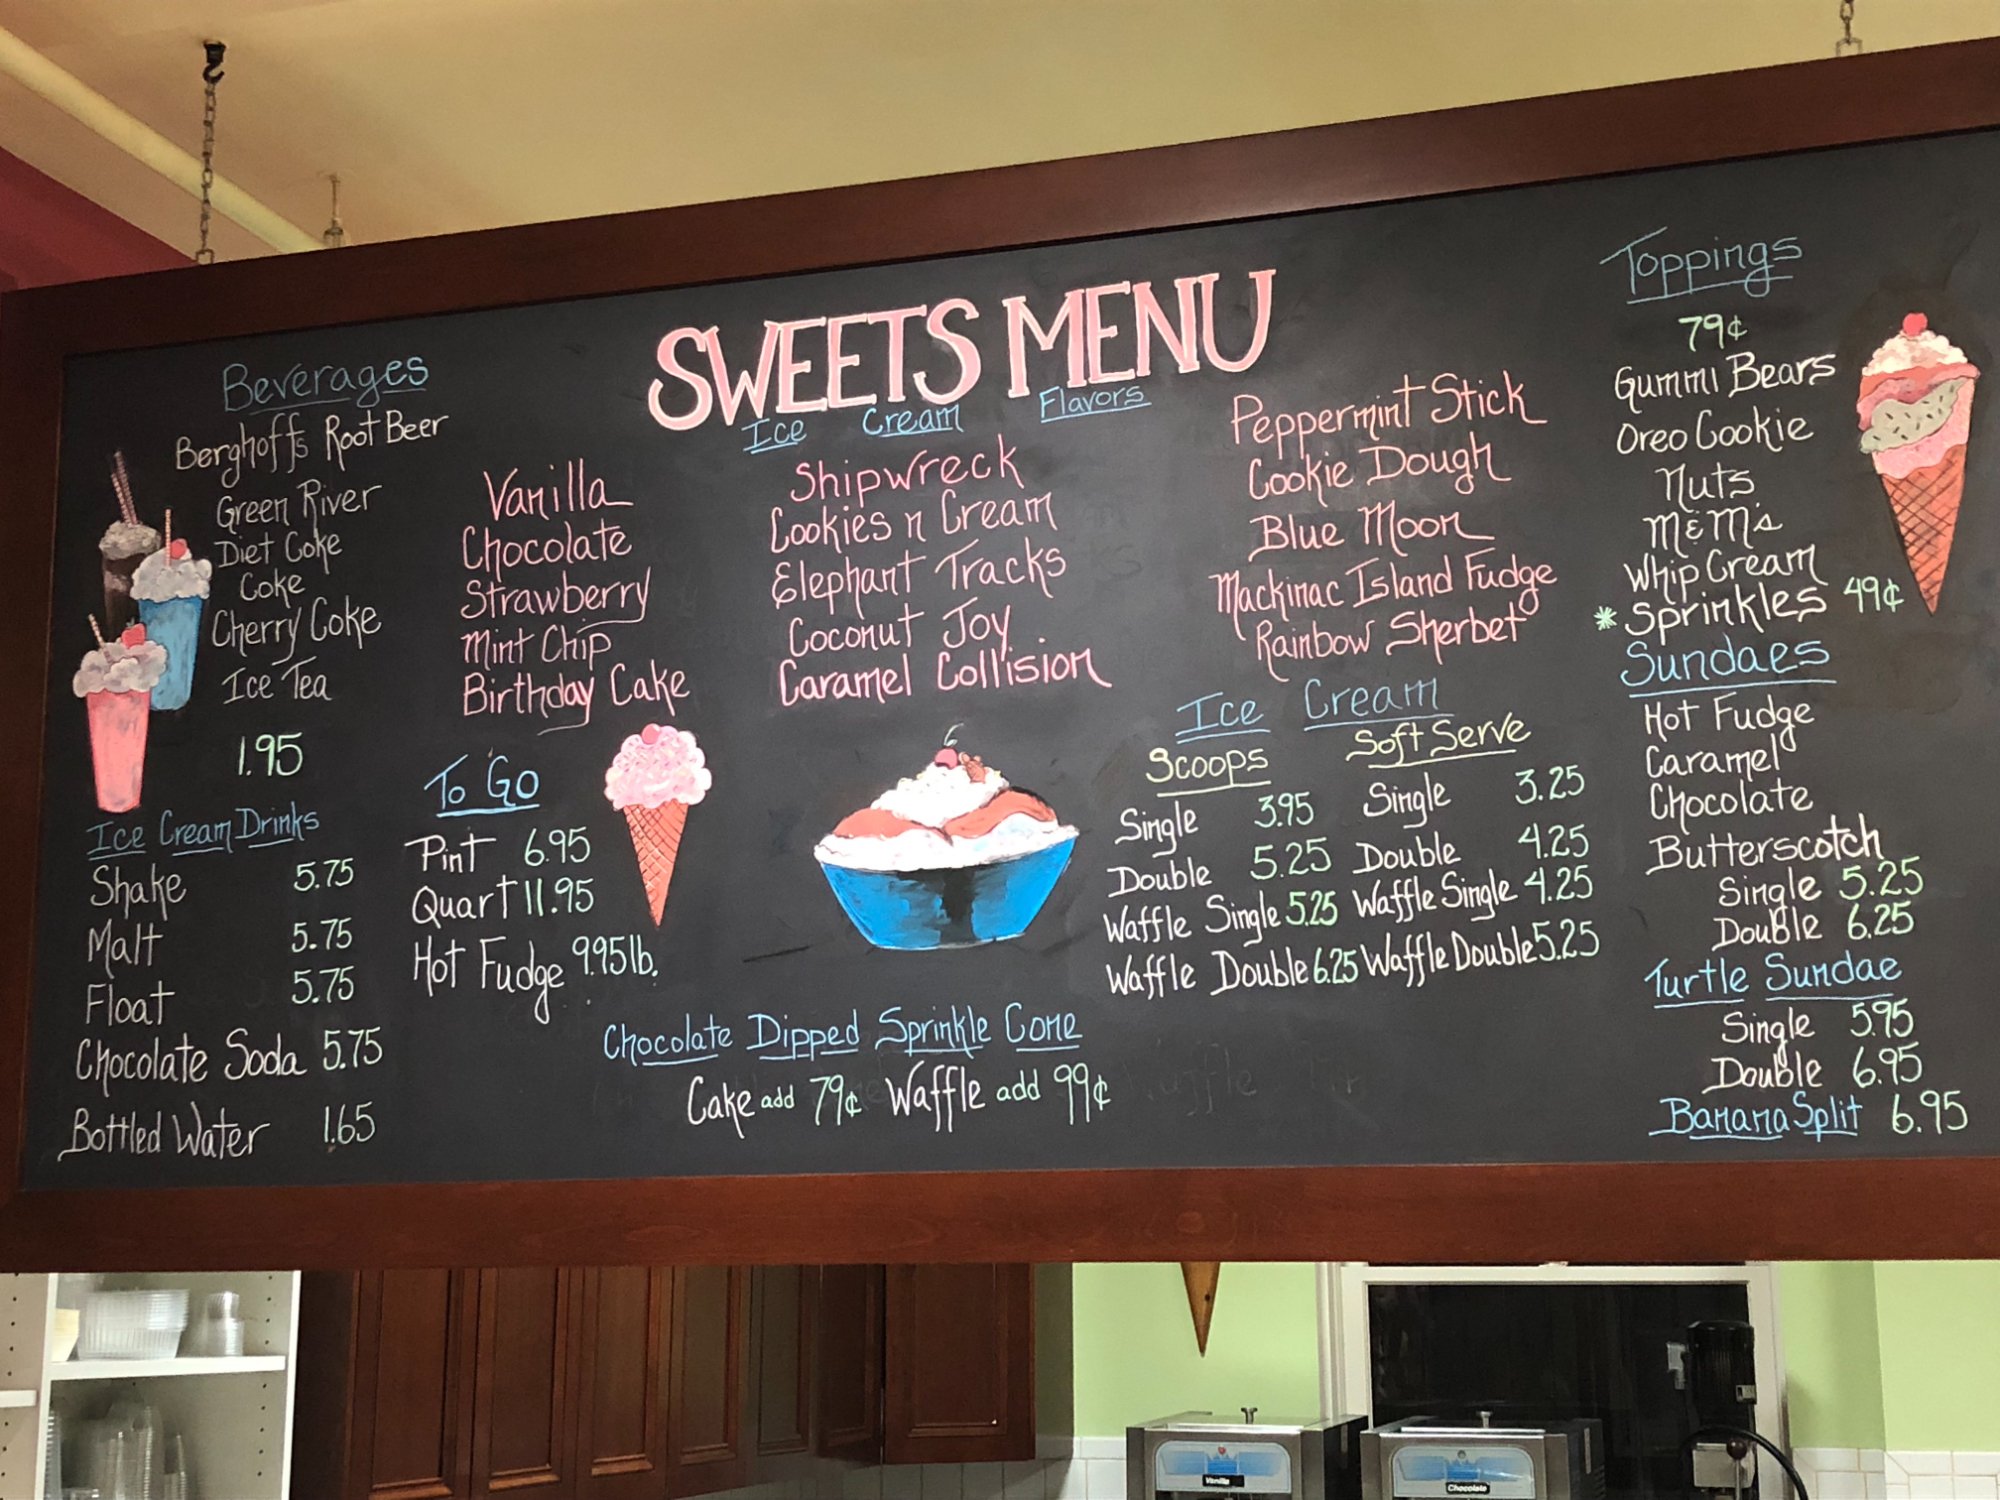 SWEETS MENU
Beverages
Berghoff's Root Beer
Green River
Diet Coke
Coke
Cherry Coke
Ice Tea
1.95
Ice Cream Drinks
Shake 5.75
Malt 5.75
Float 5.75
Chocolate Soda 5.75
Bottled Water 1.65
Ice Cream Flavors
Vanilla
Chocolate
Strawberry
Mint Chip
Birthday Cake
Shipwreck
Cookies n Cream
Elephant Tracks
Coconut Joy
Caramel Collision
Peppermint Stick
Cookie Dough
Blue Moon
Mackinac Island Fudge
Rainbow Sherbet
To Go
Pint 6.95
Quart 11.95
Hot Fudge 9.95 lb.
Chocolate Dipped Sprinkle Cone
Cake add 79¢ Waffle add 99¢
Ice Cream
Scoops
Single 3.95
Double 5.25
Waffle Single 5.25
Waffle Double 6.25
Soft Serve
Single 3.25
Double 4.25
Waffle Single 4.25
Waffle Double 5.25
Toppings
79¢
Gummi Bears
Oreo Cookie
Nuts
M&M's
Whip Cream
*Sprinkles 49¢
Sundaes
Hot Fudge
Caramel
Chocolate
Butterscotch
Single 5.25
Double 6.25
Turtle Sundae
Single 5.95
Double 6.95
Banana Split 6.95
Vanilla
Chocolate